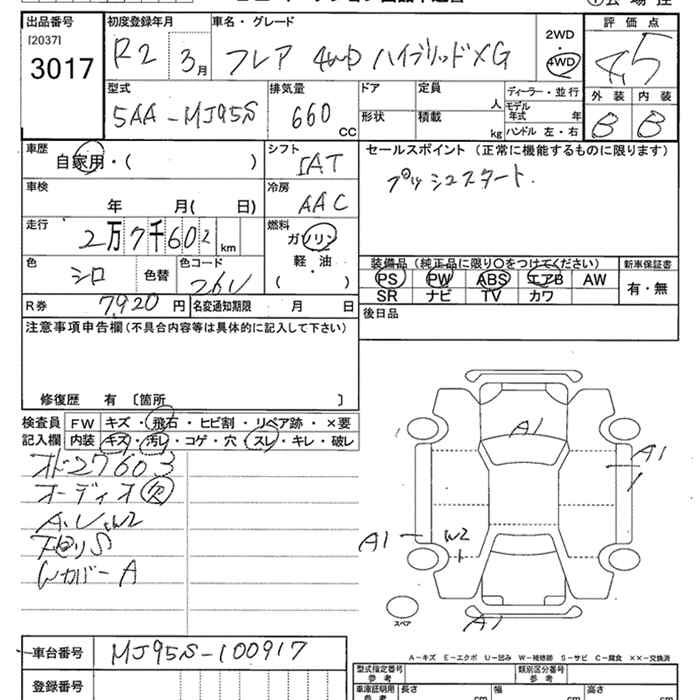 出品番号 初度登録年月 車名・グレード 2WD・4WD 評価点
[2037]
3017 R2 3月 フレア 4WD ハイブリッドXG 4.5
型式 排気量 ドア 定員 人 ディーラー・並行 外装 内装
5AA-MJ95S 660CC 形状 積載 kg モデル年式 年 B B
ハンドル 左・右
車歴 シフト セールスポイント (正常に機能するものに限ります)
自家用・( ) IAT プッシュスタート.
車検 冷房
年 月( 日) AAC
走行 燃料
2万7千602km ガソリン
軽・油
( )
色 色替 色コード 装備品 (純正品に限り○をつけてください) 新車保証書
シロ 26U PS PW ABS エアB AW 有・無
SR ナビ TV カワ
R券 7,920円 名変通知期限 月 日 後日品
注意事項申告欄 (不具合内容等は具体的に記入して下さい)
修復歴 有 〔箇所 〕
検査員 FW キズ・飛石・ヒビ割・リペア跡・×要
記入欄 内装 キズ・汚レ・コゲ・穴・スレ・キレ・破レ
オド27603
オーディオ欠
A1
A1
A1 W2
A1
スペア
A-キズ E-エクボ U-凹み W-補修跡 S-サビ C-腐食 ××-交換済
車台番号 MJ95S-100917
登録番号
型式指定番号 参考 類別区分番号 参考
車庫証明用 参考 長さ cm 幅 cm 高さ cm